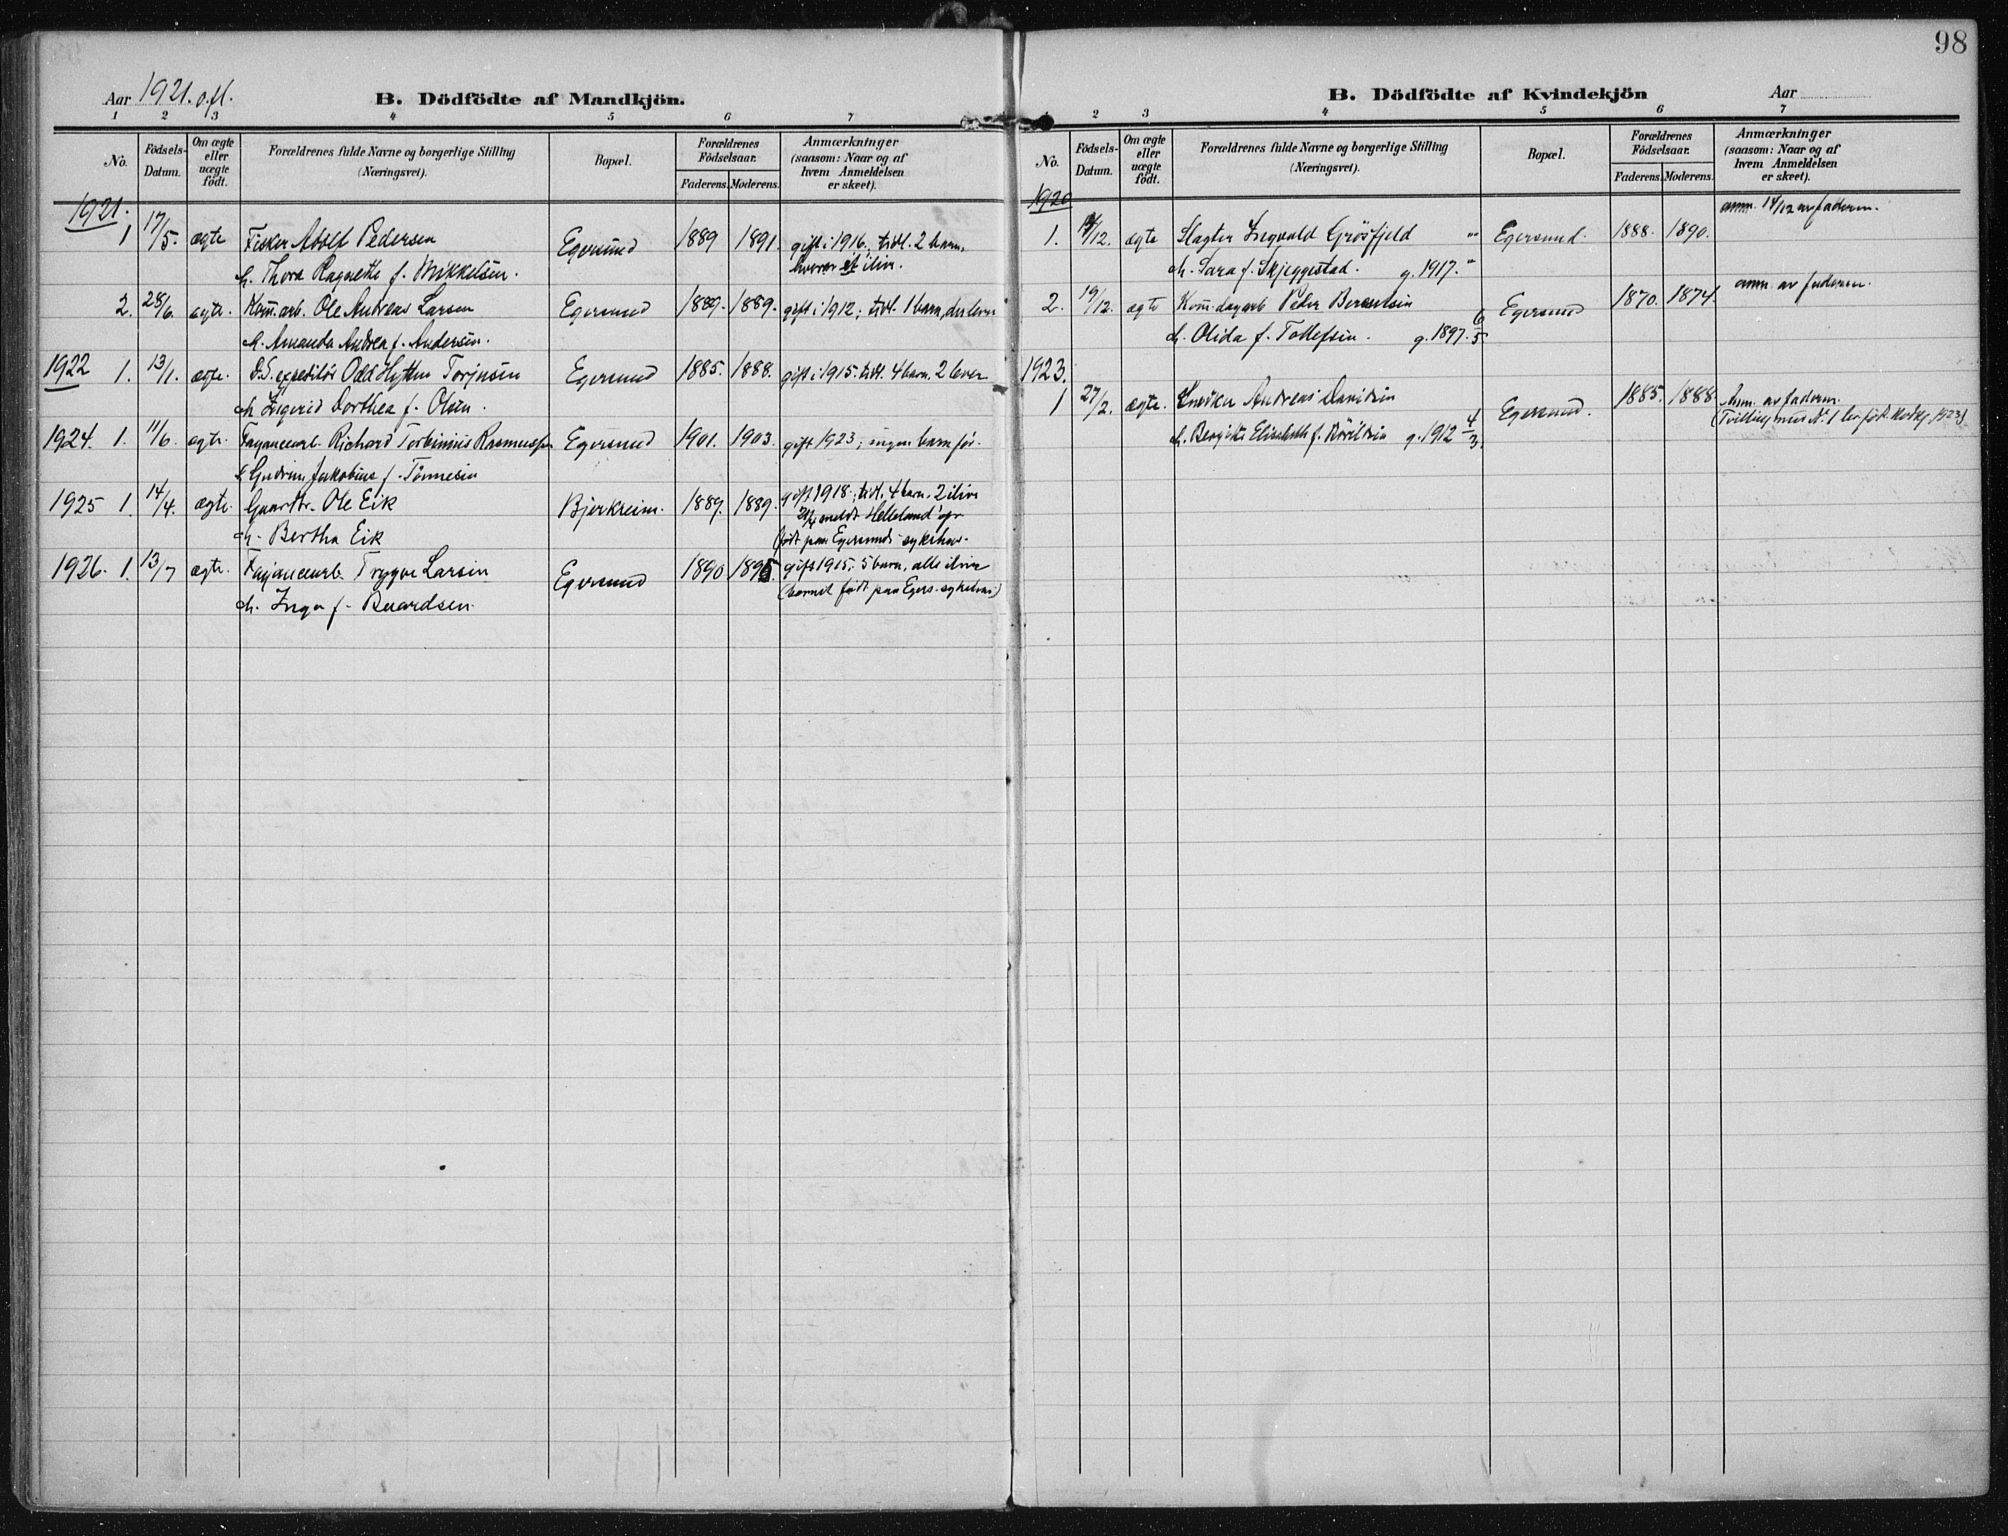 98
Aar 1921 o.fl.
B. Dödfödte af Mandkjön.
1 2 3 4 5 6 7
No.
Födsels-Datum.
Om ægte eller uægte födt.
Forældrenes fulde Navne og borgerlige Stilling (Næringsvei).
Bopæl.
Forældrenes Födselsaar.
Faderens. Moderens.
Anmærkninger (saasom: Naar og af hvem Anmeldelsen er skeet).
1921.
1 17/5. ægte Fisker Adolf Pedersen Egersund 1889 1891. gift i 1916. tidl. 2 barn,
h. Thora Ragnette f. Mikkelsen. hvorav et ilive.
2. 28/6. ægte. Kom.arb. Ole Andreas Larsen Egersund 1889. 1889. gift i 1912; tidl. 1 barn, der lever
h. Amanda Andrea f. Andersen.
1922 1. 13/1. ægte. D.S. expeditör Odd Hytten Torjusen Egersund 1885. 1888. gift i 1915. tidl. 4 barn. 2 lever
h. Ingerid Dorthea f. Olsen.
1924. 1. 11/6. ægte. Fayancearb. Richard Torbinius Rasmussen Egersund 1901. 1903. gift 1923; ingen barn för.
h. Gudrun Jakobine f. Tönnesen
1925 1. 14/4. ægte. Gaardbr. Ole Eik Bjerkreim. 1889. 1889. gift 1918; tidl. 4 barn. 2 ilive
h. Bertha Eik meldt Helleland
födt paa Egersunds sykehus.
1926. 1. 13/7 ægte. Fayancearb. Trygve Larsen Egersund 1890 1895. gift 1915. 5 barn, alle ilive
h. Inga f. Baardsen. (barnet födt paa Egers. sykehus)
B. Dödfödte af Kvindekjön
Aar
1 2 3 4 5 6 7
No.
Födsels-Datum.
Om ægte eller uægte födt.
Forældrenes fulde Navne og borgerlige Stilling (Næringsvei).
Bopæl.
Forældrenes Födselsaar.
Faderens. Moderens.
Anmærkninger (saasom: Naar og af hvem Anmeldelsen er skeet).
1920
anm. 14/12 av faderen.
1. /12. ægte Slagter Ingvald Grösfjeld Egersund. 1888. 1890.
h. Sara f. Skjeggestad. g. 1917.
anm. av faderen.
2. 19/12. ægte Kom. dagarb Peder Berentsen Egersund 1870. 1874.
h. Olida f. Tollefsen. g. 1897 6/5
1923.
1 27/2. ægte. Snedker Andreas Davidsen Egersund. 1885. 1888. Anm. av faderen.
h. Bergitte Elisabeth f. g. 1912 4/3. (Tvilling mus Nr. 1 lev. födt 1923)